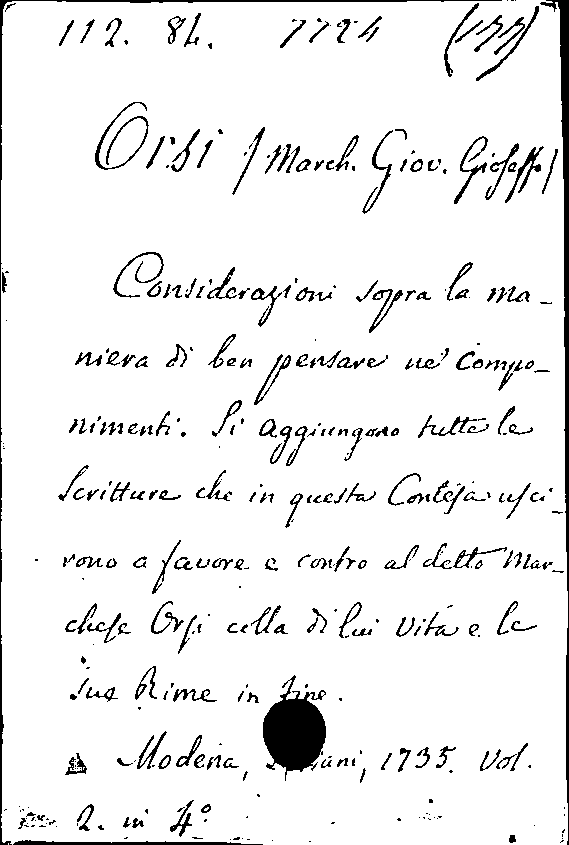 112. 84. 7724 (177)
Orsi (March. Giov. Gioseffo)
Considerazioni sopra la ma-
niera di ben pensare ne' compo-
nimenti. Si aggiungono tutte le
Scritture che in questa Contesa usci-
rono a favore e contro al detto Mar-
chese Orsi colla di lui Vita e le
sue Rime in fine.
Modena, 1735. Vol.
2. in 4°